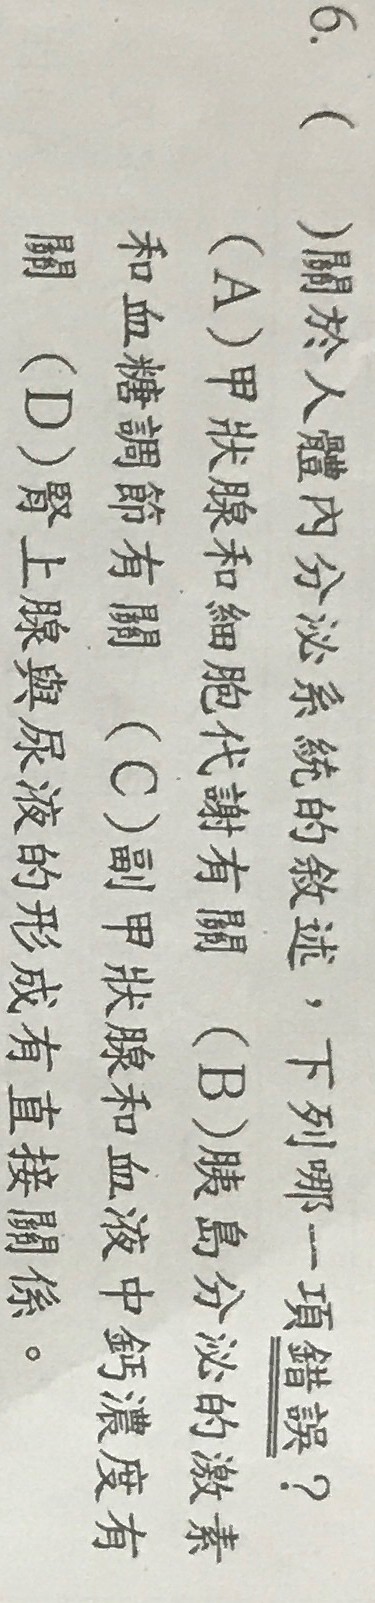 6. (    )關於人體內分泌系統的敘述，下列哪一項錯誤？
(A)甲狀腺和細胞代謝有關 (B)胰島分泌的激素
和血糖調節有關 (C)副甲狀腺和血液中鈣濃度有
關 (D)腎上腺與尿液的形成有直接關係。